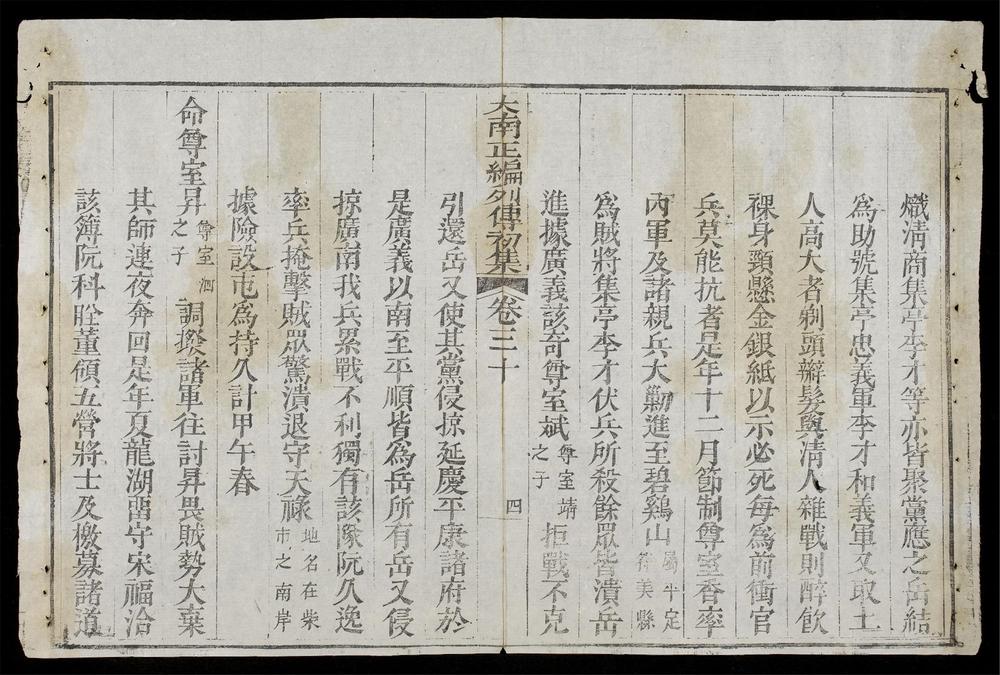 熾清商集亭李才等亦皆聚黨應之岳結
為助號集亭忠義軍李才和義軍又取土
人高大者剃頭辮髮與清人雜戰則醉飲
裸身頸懸金銀紙以示必死每為前衝官
兵莫能抗者是年十二月節制尊室香率
內軍及諸親兵大勦進至碧鷄山屬平定符美縣
為賊將集亭李才伏兵所殺餘眾皆潰岳
進據廣義該奇尊室斌尊室靖之子拒戰不克
大南正編列傳初集 卷三十 四
引還岳又使其黨侵掠延慶平康諸府於
是廣義以南至平順皆為岳所有岳又侵
掠廣南我兵累戰不利獨有該隊阮久逸
率兵掩擊賊眾驚潰退守天祿地名在柴市之南岸
據險設屯為持久計甲午春
命尊室昇尊室泗之子調撥諸軍往討昇畏賊勢大棄
其師連夜奔回是年夏龍湖留守宋福洽
該簿阮科詮董領五營將士及檄募諸道